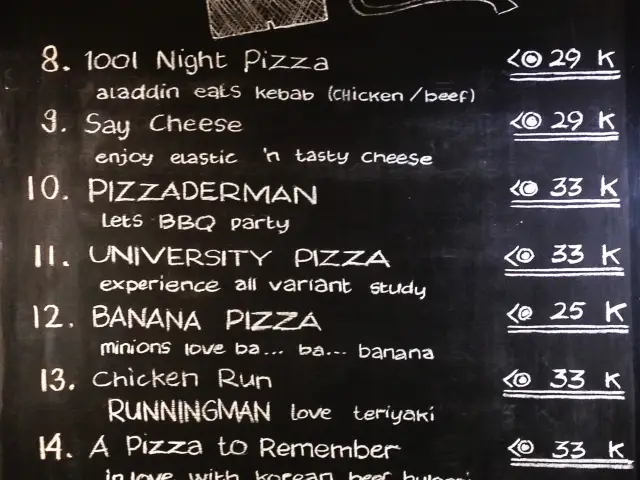 8. 1001 Night Pizza <@ 29 K
aladdin eats kebab (chicken/beef)
9. Say Cheese <@ 29 K
enjoy elastic 'n tasty cheese
10. PIZZADERMAN <@ 33 K
Lets BBQ party
11. UNIVERSITY PIZZA <@ 33 K
experience all variant study
12. BANANA PIZZA <@ 25 K
minions love ba... ba... banana
13. Chicken Run <@ 33 K
RUNNINGMAN love teriyaki
14. A Pizza to Remember <@ 33 K
in love with korean beef bulgogi